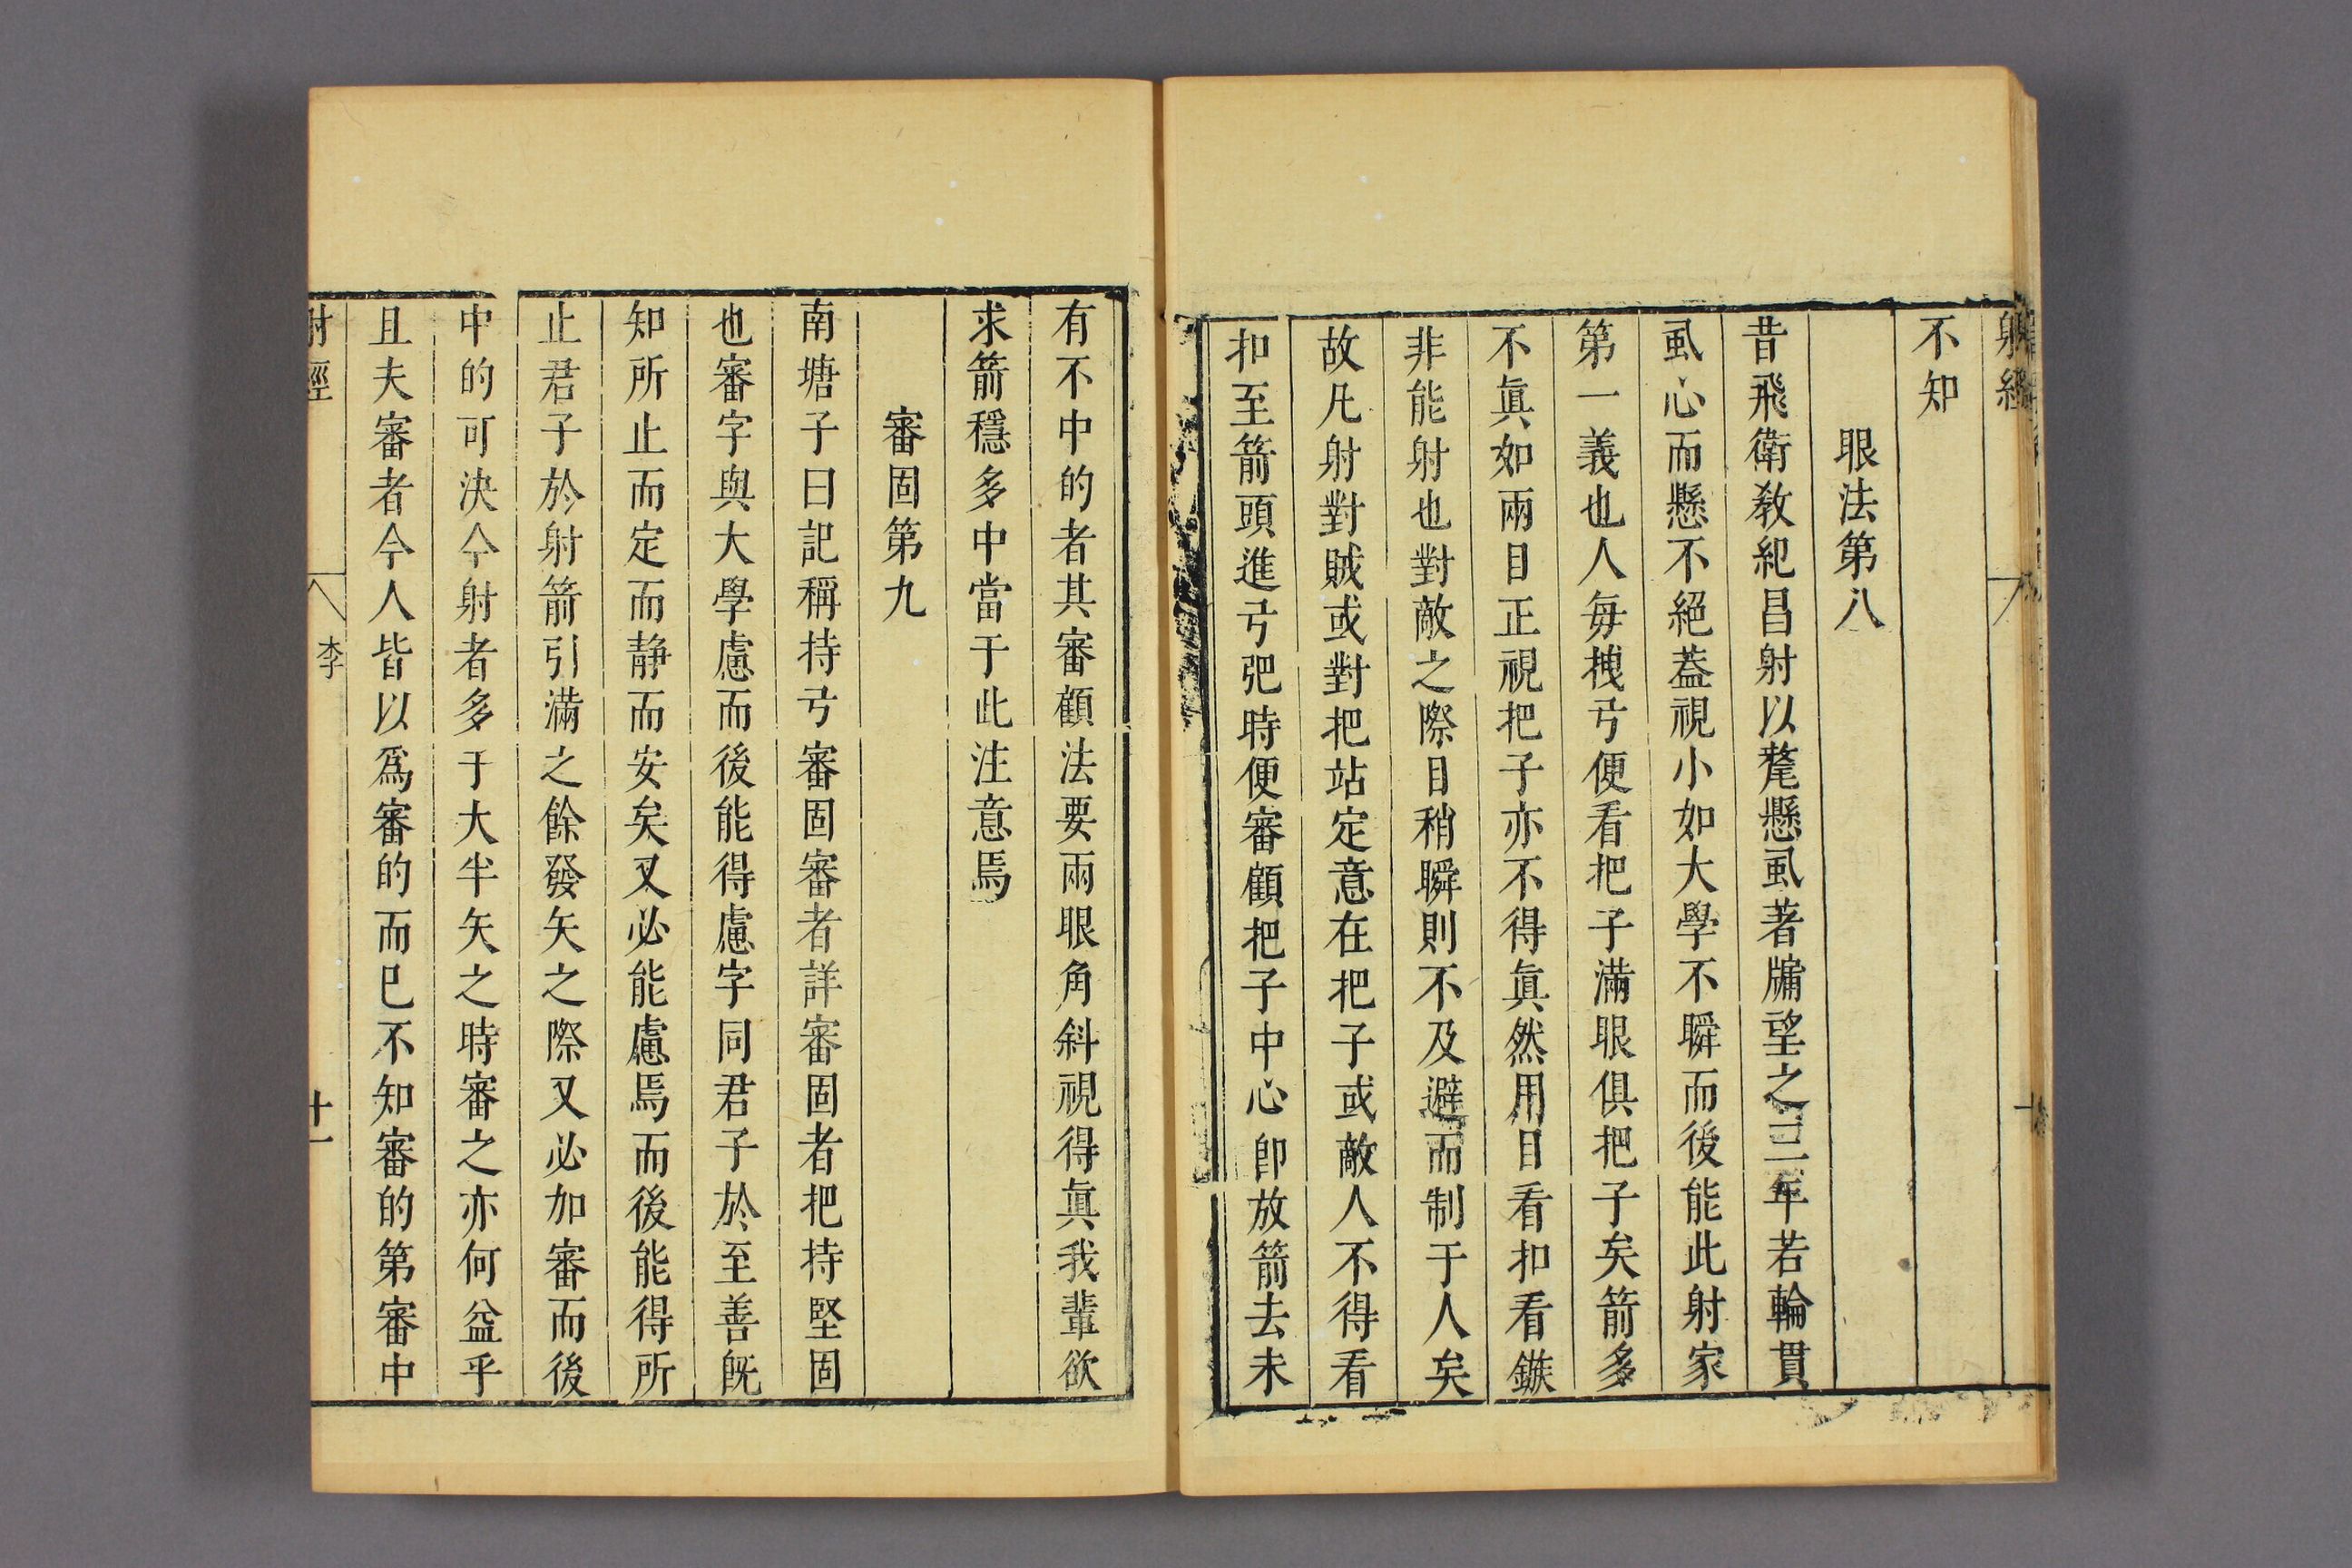 射經
不知
眼法第八
昔飛衛教紀昌射以氂懸虱著牖望之三年若輪貫
虱心而懸不絕葢視小如大學不瞬而後能此射家
第一義也人每拽弓便看把子滿眼俱把子矣箭多
不眞如兩目正視把子亦不得眞然用目看扣看鏃
非能射也對敵之際目稍瞬則不及避而制于人矣
故凡射對賊或對把站定意在把子或敵人不得看
扣至箭頭進弓弝時便審顧把子中心卽放箭去未
有不中的者其審顧法要兩眼角斜視得眞我輩欲
求箭穩多中當于此注意焉
審固第九
南塘子曰記稱持弓審固審者詳審固者把持堅固
也審字與大學慮而後能得慮字同君子於至善旣
知所止而定而静而安矣又必能慮焉而後能得所
止君子於射箭引滿之餘發矢之際又必加審而後
中的可決今射者多于大半矢之時審之亦何益乎
且夫審者今人皆以爲審的而已不知審的第審中
射經 李 十一